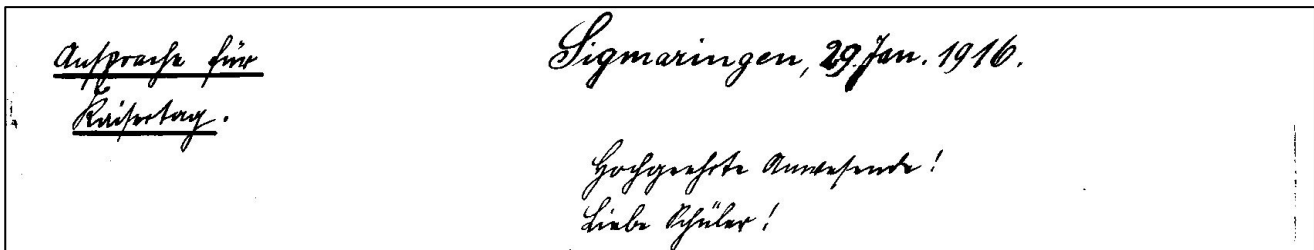 Ansprache für
Kaisertag.
Sigmaringen, 29. Jan. 1916.
Hochgeehrte Anwesende!
Liebe Schüler!